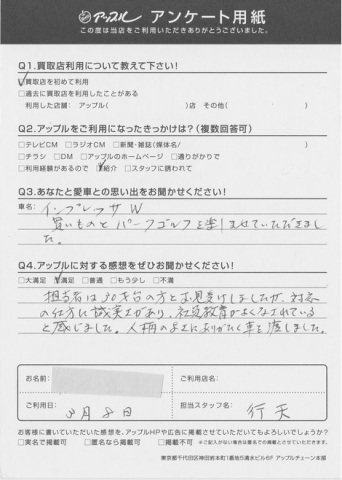 アップル アンケート用紙
この度は当店をご利用いただきありがとうございました。
Q1.買取店利用について教えて下さい!
☑買取店を初めて利用
□過去に買取店を利用したことがある
利用した店舗: アップル( )店 その他( )
Q2.アップルをご利用になったきっかけは?(複数回答可)
□テレビCM □ラジオCM □新聞・雑誌(媒体名/ )
□チラシ □DM □アップルのホームページ □通りがかりで
□利用経験があるので ☑紹介 □スタッフに誘われて
Q3.あなたと愛車との思い出をお聞かせください!
車名: インプレッサW
買いものとパークゴルフを楽しませていただきまし
た。
Q4.アップルに対する感想をぜひお聞かせください!
□大満足 ☑満足 □普通 □もう少し □不満
担当者は30才台の方とお見受けしましたが、対応
の仕方に誠実さがあり、社員教育がよくなされている
と感じました。人柄のよさにありがたく車を渡しました。
お名前:
ご利用店名:
ご利用日: 3月8日
担当スタッフ名: 行天
お客様に書いていただいた感想を、アップルHPや広告に掲載させていただいてもよろしいでしょうか?
□実名で掲載可 □匿名なら掲載可 □掲載不可 ※ご記入がない場合は匿名での掲載とさせていただきます。
東京都千代田区神田岩本町1番地5清水ビル6F アップルチェーン本部